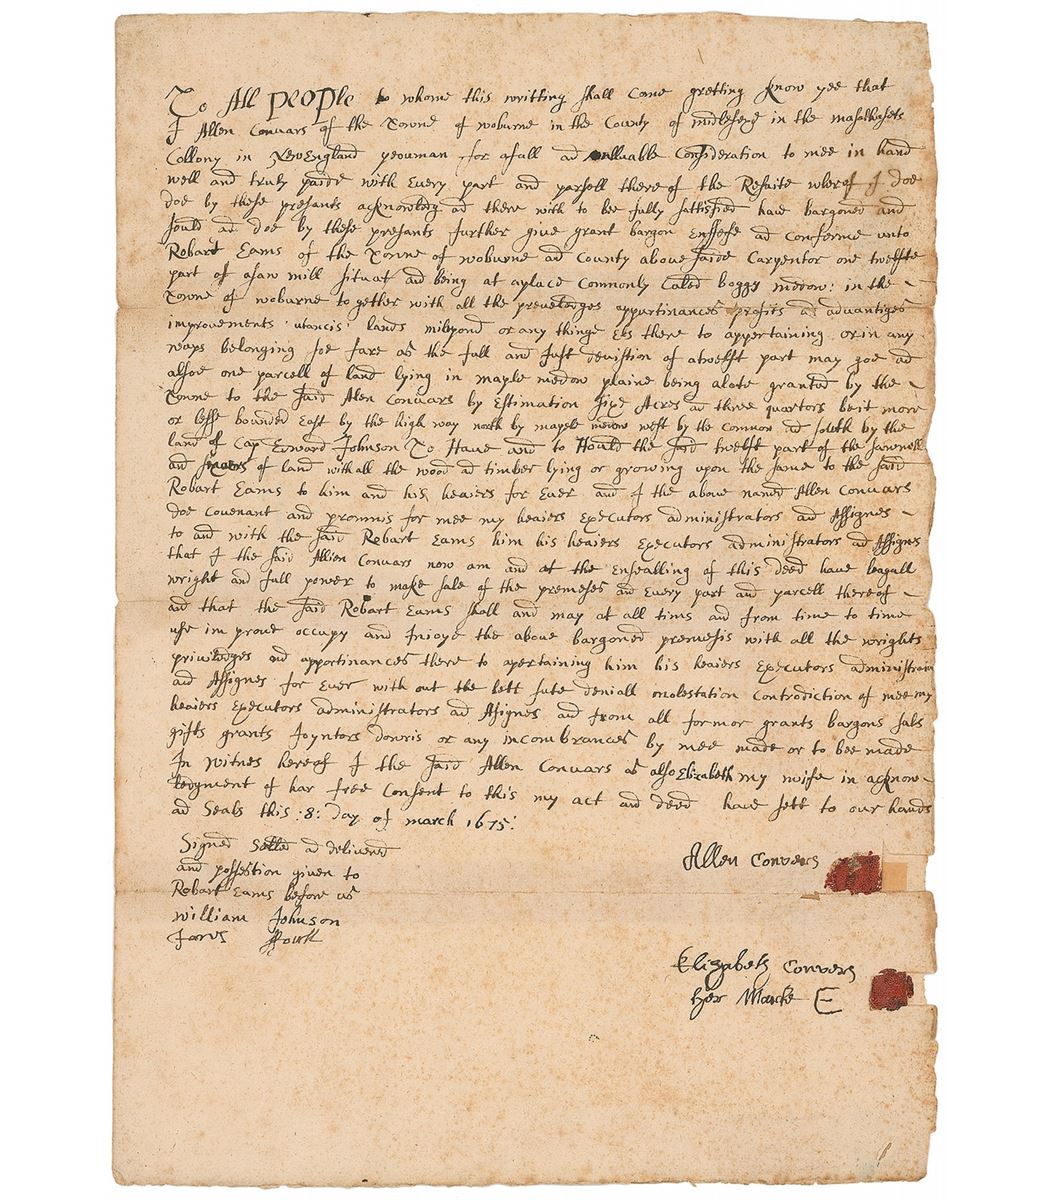 To All people to whome this writting shall Come gretting know yee that
I Allen Convars of the Towne of woburne in the County of midlesex in the masathusets
Collony in New England yeouman for a full ad valluable Consideration to mee in hand
well and truly paide with Every part and parsell there of the Resaite wherof I doe
doe by these presants acknowledg ad there with to be fully sattisfied have bargoned and
sould ad doe by these presants further give grant bargon Enffeofe ad Conferme unto
Robart Eams of the Towne of woburne ad County above saide Carpentor one twelfte
part of a saw mill situat ad being at a place Commonly Caled boggs medow: in the
Towne of woburne to gether with all the preveledges appurtinances profits ad advantiges
improvements utancis lands milpond or any thinge Els there to appertaining or in any
ways belonging soe fare as the full and Just devistion of a twelft part may goe ad
alsoe one parcell of land lying in maple medow plaine being a lote granted by the
Towne to the said Alen Convars by Estimation sixe Acres ad three quartors be it more
or lesse bounded East by the high way north by maple medow west by the common ad south by the
land of Cap Edward Johnson To Have and to Hould the said twelft part of the sawmell
and of land with all the wood ad timber lying or growing upon the same to the said
Robart Eams to him and his heaiers for Ever and I the above named Allen Convars
doe Covenant and prommis for mee my heaiers Executors administrators ad Assignes
to and with the said Robart Eams him his heaiers Executors administrators ad Assignes
that I the said Allien Convars now am and at the Ensealling of this deed have leagall
wright and full power to make sale of the premeses an Every part and parcell thereof
ad that the said Robart Eams shall and may at all tims and from time to time
use improve occupy and Inioye the above bargoned premesis with all the wrights
priviledges ad apportinances there to apertaining him his heaiers Executors administrators
and Assignes for Ever with out the lett sute deniall molestation Contradiction of mee my
heaiers Executors administrators ad Asignes ad from all formor grants bargons sals
gifts grants Joyntors dowris or any incombrances by mee made or to bee made
In witnes hereof I the said Allen Convars as also Elizabeth my wife in acknow-
ledgment of har free Consent to this my act and deed have sett to our hands
ad Seals this :8: Day of march 1675:
Signed Selled ad delivered
and possestion given to
Robart Eams before us
William Johnson
Allen Convers
Elizabeth Convers
her Marke E